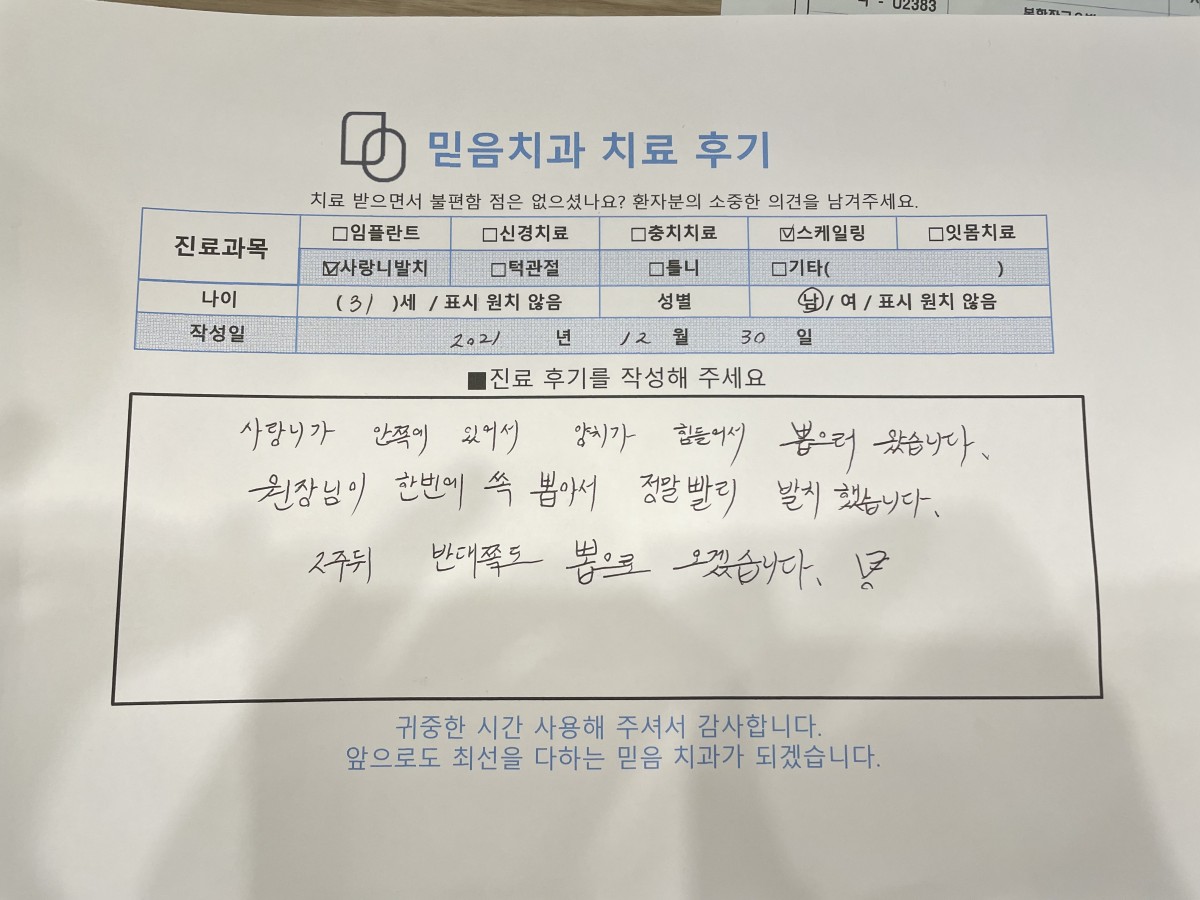 - 02383
믿음치과 치료 후기
치료 받으면서 불편함 점은 없으셨나요? 환자분의 소중한 의견을 남겨주세요.
진료과목 □임플란트 □신경치료 □충치치료 ☑스케일링 □잇몸치료
☑사랑니발치 □턱관절 □틀니 □기타( )
나이 (31)세 / 표시 원치 않음 성별 남/ 여 / 표시 원치 않음
작성일 2021 년 12 월 30 일
■진료 후기를 작성해 주세요
사랑니가 안쪽에 있어서 양치가 힘들어서 뽑으러 왔습니다.
원장님이 한번에 쏙 뽑아서 정말 빨리 발치 했습니다.
2주뒤 반대쪽도 뽑으로 오겠습니다.
귀중한 시간 사용해 주셔서 감사합니다.
앞으로도 최선을 다하는 믿음 치과가 되겠습니다.